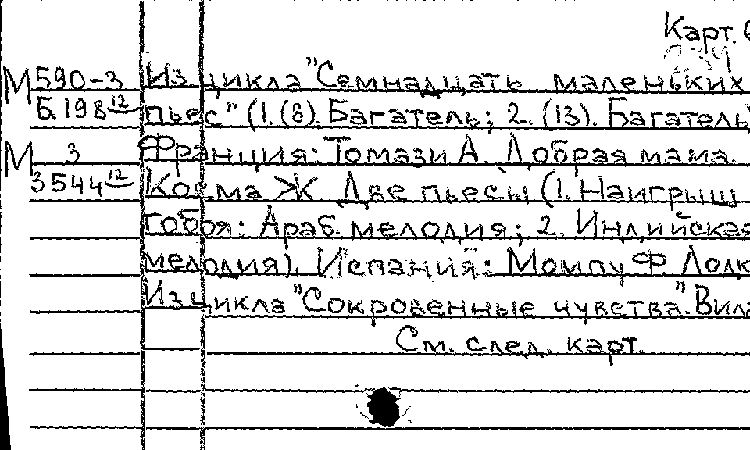 Карт.
М 590-3 Из цикла "Семнадцать маленьких
Б.198 12 пьес" (1. (8). Багатель; 2. (13). Багатель
М 3 Франция: Томази А. Добрая мама.
3544 12 Косма Ж Две пьесы (1. Наигрыш
гобоя: Араб. мелодия; 2. Индийская
мелодия). Испания: Момпу Ф
Из цикла "Сокровенные чувства".
См. след. карт.